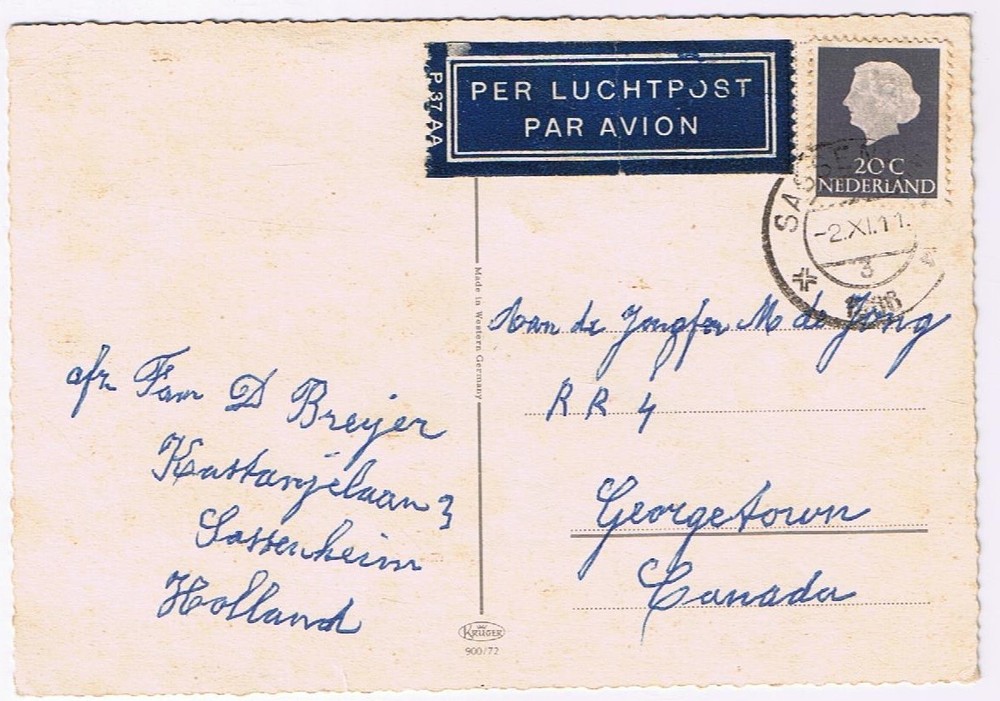 P 37 AA
PER LUCHTPOST
PAR AVION
20 C
NEDERLAND
SASSEN
-2.XI.11.
3
Made in Western Germany
Aan de Jongfer M de Jong
R R 4
Georgetown
Canada
afz Fam D Breyer
Kastanjelaan 3
Sassenheim
Holland
KRÜGER
900/72